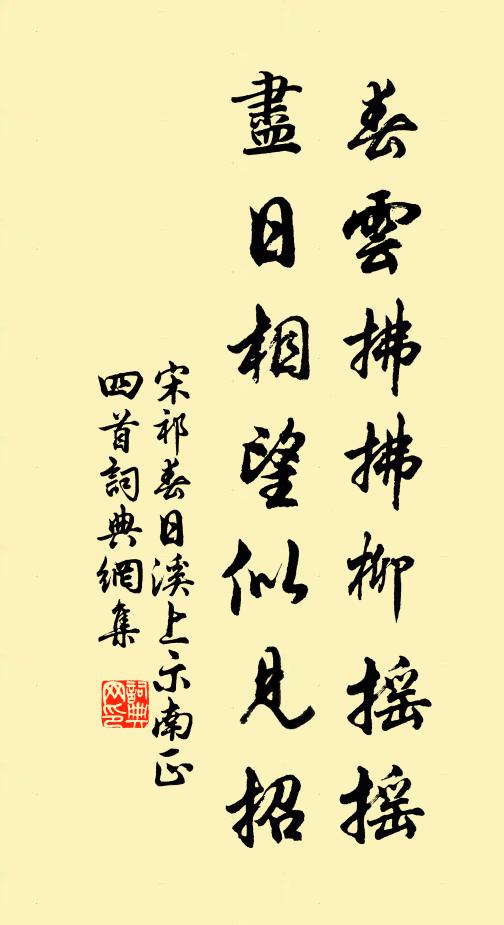 春雲拂拂柳摇摇
盡日相望似見招
宋祁春日溪上示南正
四首詞典網集
詞典网印